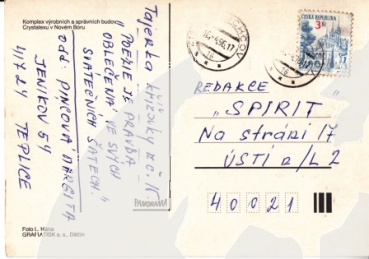 Komplex výrobních a správních budov
Crystalexu v Novém Boru
Tajenka křížovky z č. 15
" POEZIE JE PRAVDA
OBLEČENÁ VE SVÝCH
SVÁTEČNÍCH ŠATECH. "
odd. PINCOVÁ MARGITA
JENÍKOV 54
417 24 TEPLICE
Foto I.
GRAFIATISK a. s., Děčín
PANORAMA
ČESKÁ REPUBLIKA
3
REDAKCE
„ SPIRIT "
Na stráni 17
ÚSTÍ n/L 2
40021